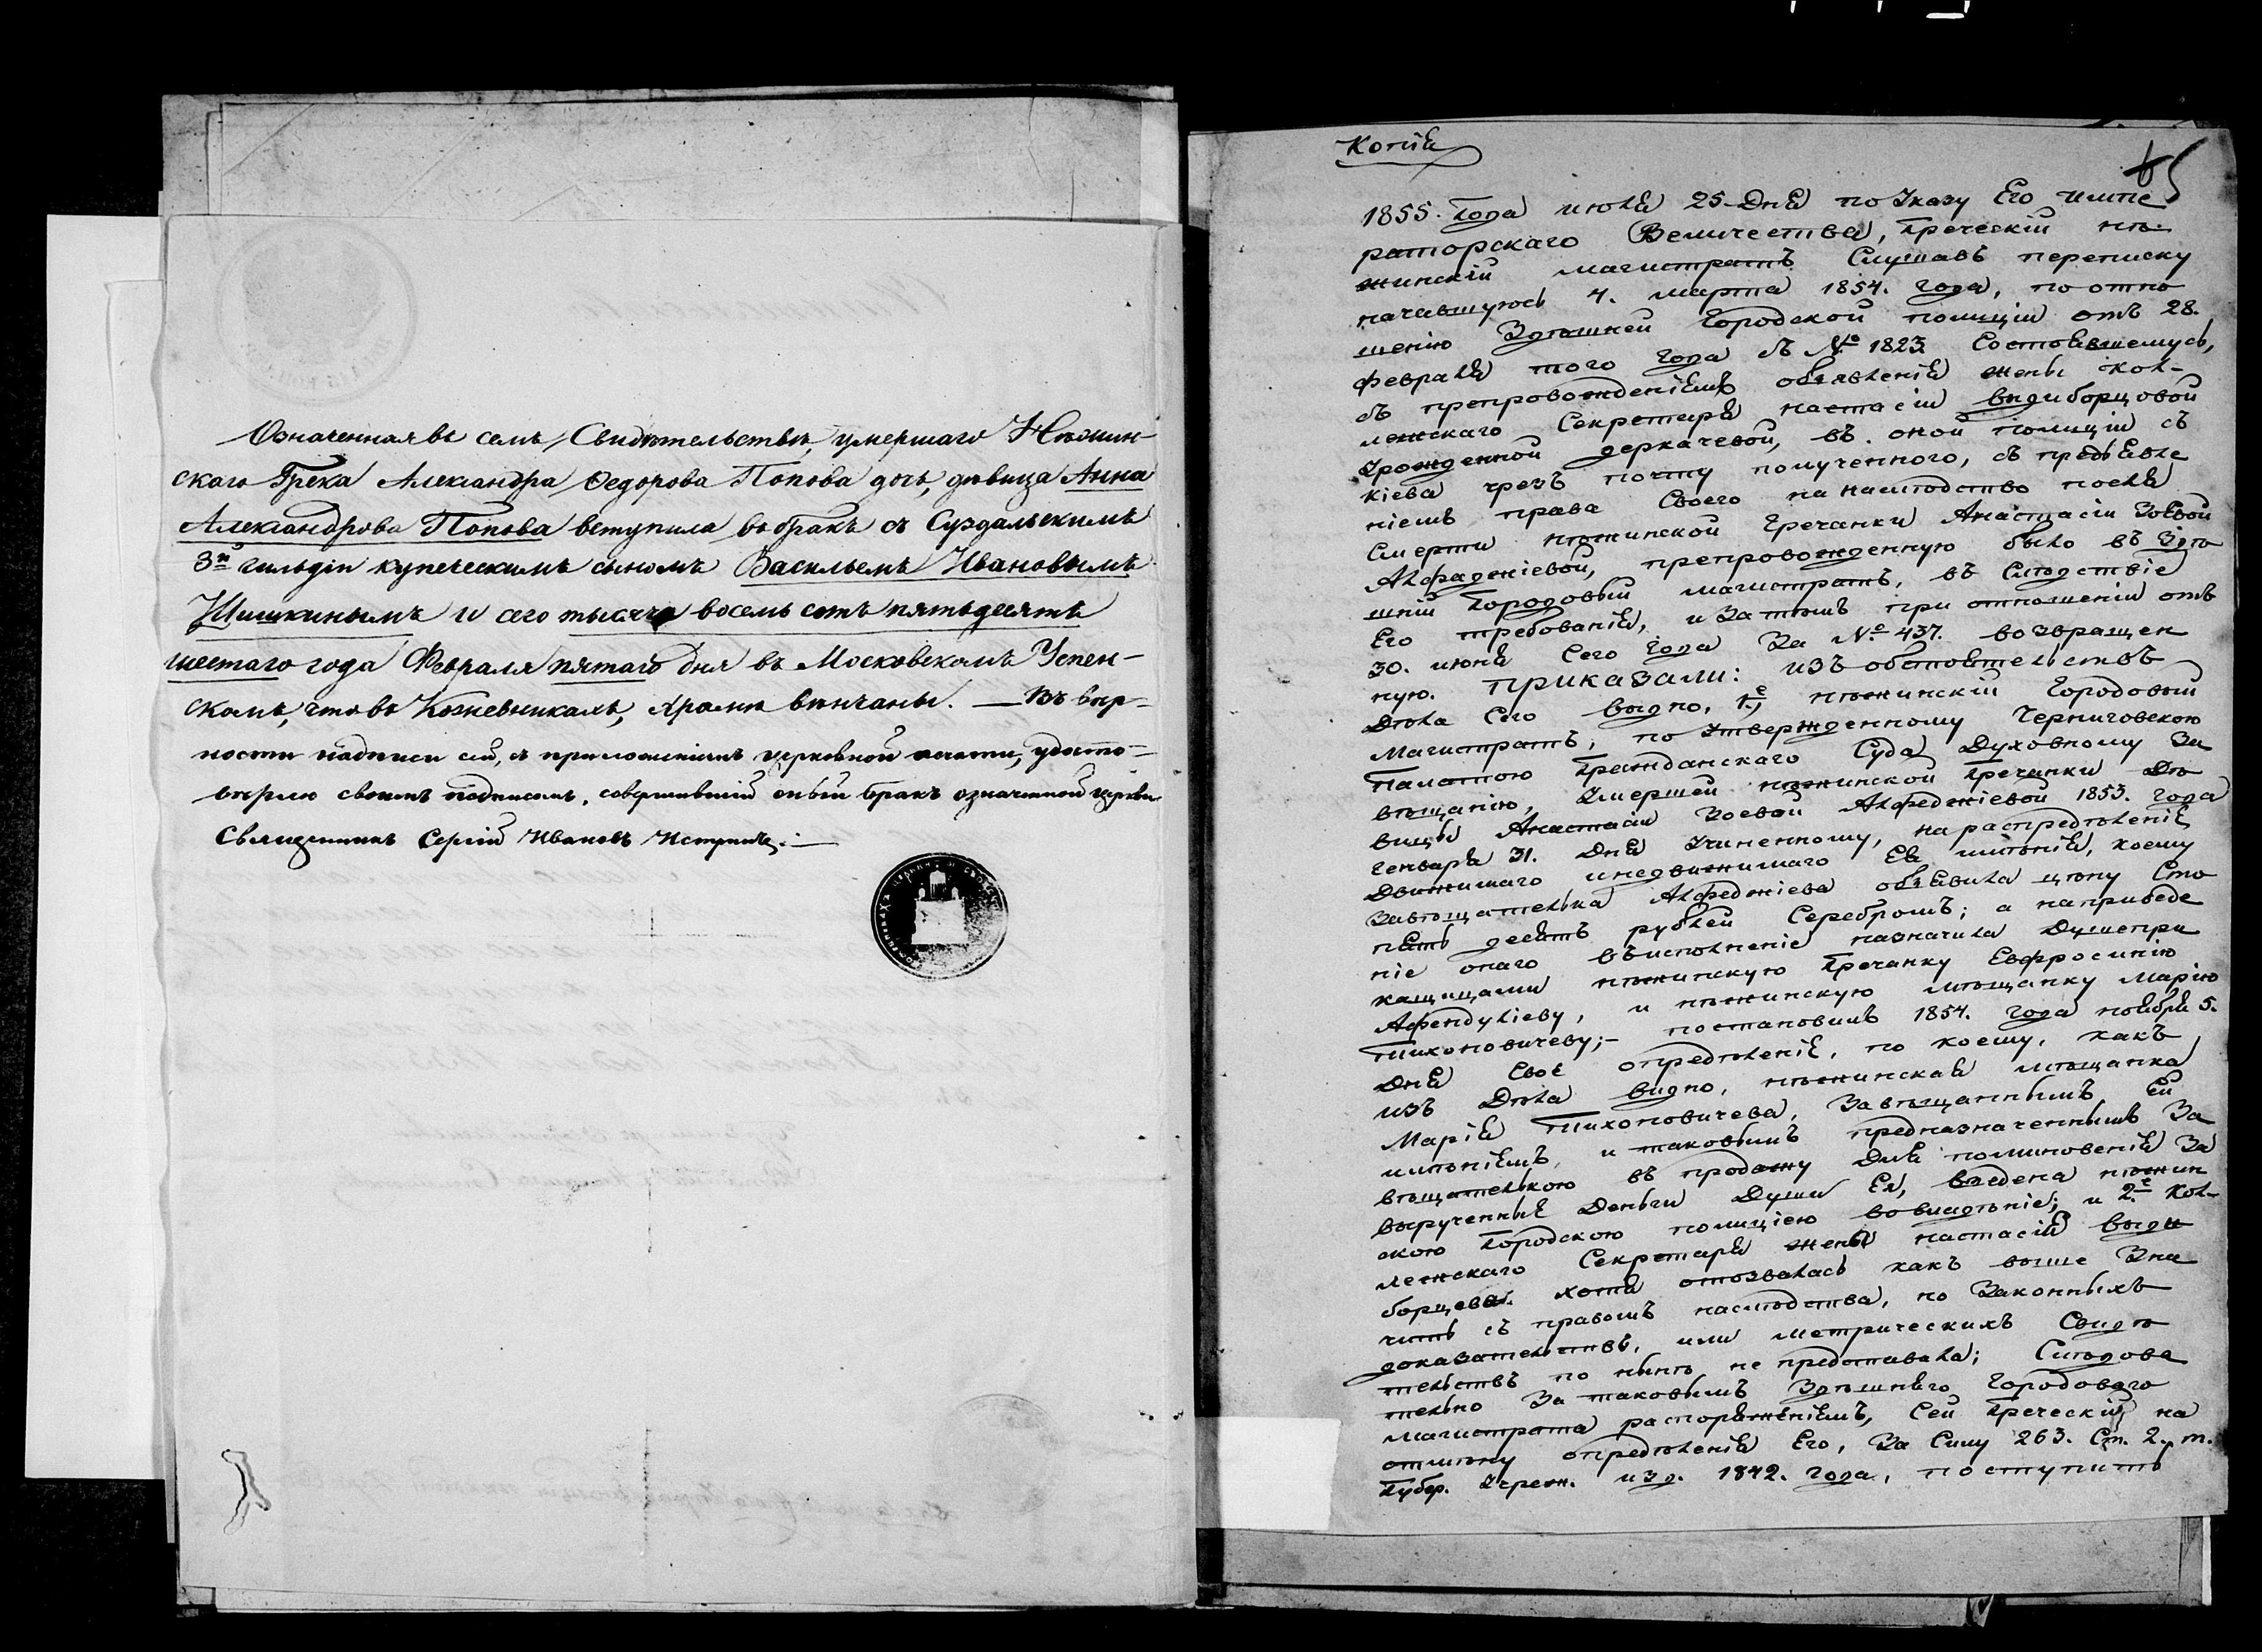 Означенная въ семъ Свидѣтельствѣ, умершаго Нѣжин-
скаго Грека Александра Ѳедорова Попова дочь, дѣвица Анна
Александрова Попова вступила въ бракъ съ Суздальскимъ
3й гильдіи купеческимъ сыномъ Васильемъ Ивановымъ
Шишкинымъ и сего тысяча восемь сотъ пятьдесятъ
шестаго года Февраля пятаго дня въ Московскомъ Успен-
скомъ, что въ Кожевникахъ, храмѣ вѣнчаны. — Въ вѣр-
ности надписи сей, съ приложеніемъ церковной печати, удосто-
вѣряю своимъ подписомъ, совершившій оный бракъ означенной церкви
Священникъ Сергій Ивановъ Истринъ.
Копія
65
1855. Года июля 25 Дня по Указу Его Импе
раторскаго Величества, Греческій нѣ-
жинскій магистратъ Слушавъ переписку
начавшуюсь 4. марта 1854. года, по отно
шенію Здѣшней Городской полиціи отъ 28.
февраля того Года съ № 1823 Состоявшемусь,
съ препровожденіемъ объявленія жены кол-
лежскаго Секретаря настасіи Выдиборщовой
Урожденной деркачевой, въ оной полиціи съ
кіева чрезъ почту полученного, съ предъявле
ніемъ права Своего на наслѣдство послѣ
Смерти нѣжинской Гречанки Анастасіи Зоевой
Алфаджіевой, препровожденную было въ Здѣ
шній Городовый магистратъ, въ Слѣдствіе
Его требованія, и За тѣмъ при отношеніи отъ
30. июня Сего Года За № 437. возвращен
ную. Приказали: изъ обстоятельствъ
Дѣла Сего видно, 1е, нѣжинскій Городовый
Магистратъ, по Утвержденному Черниговскою
Палатою Гражданскаго Суда Духовному За
вѣщанію, Умершей нѣжинской Гречанки Дѣ
вицы Анастасіи Зоевой Алфеджіевой 1853. Года
Генваря 31. Дня Учиненному, на распредѣленіе
Движимаго и недвижимаго Ея имѣнія, коему
Завѣщателька Алфеджіева объявила цѣну Сто
пять десятъ рублей Серебромъ; а на приведе
ніе онаго въ исполненіе назначила Душепри
кащицами нѣжинскую Гречанку Евфросинію
Афендуліеву, и нѣжинскую мѣщанку Марію
Тихоновичеву;- постановилъ 1854. Года ноября 5.
Дня Свое опредѣленіе, по коему, какъ
изъ Дѣла видно, нѣжинская мѣщанка
Марія Тихоновичева, Завѣщаннымъ Ей
имѣніемъ, и таковымъ предназначеннымъ За
вѣщателькою въ продажу Для поминовенія За
вырученныя Деньги Души Ея, введена нѣжин
скою Городскою полиціею во владѣніе; и 2е Кол-
лежскаго Секретаря жена настасія Выди
борщева. хотя отозвалась какъ выше Зна
читъ съ правомъ наслѣдства, но Законныхъ
доказательствъ, или метрическихъ Свидѣ
тельствъ по нынѣ не представила; Слѣдова
тельно За таковымъ Здѣшняго Городоваго
Магистрата распоряженіемъ, Сей Греческій на
отмѣну опредѣленія Его, За Силу 263. Ст. 2. т.
Губер. Учреж. изд. 1842. года, поступить